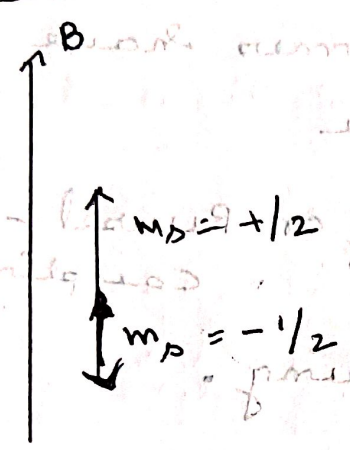 B
m_s = +/2
m_s = -1/2